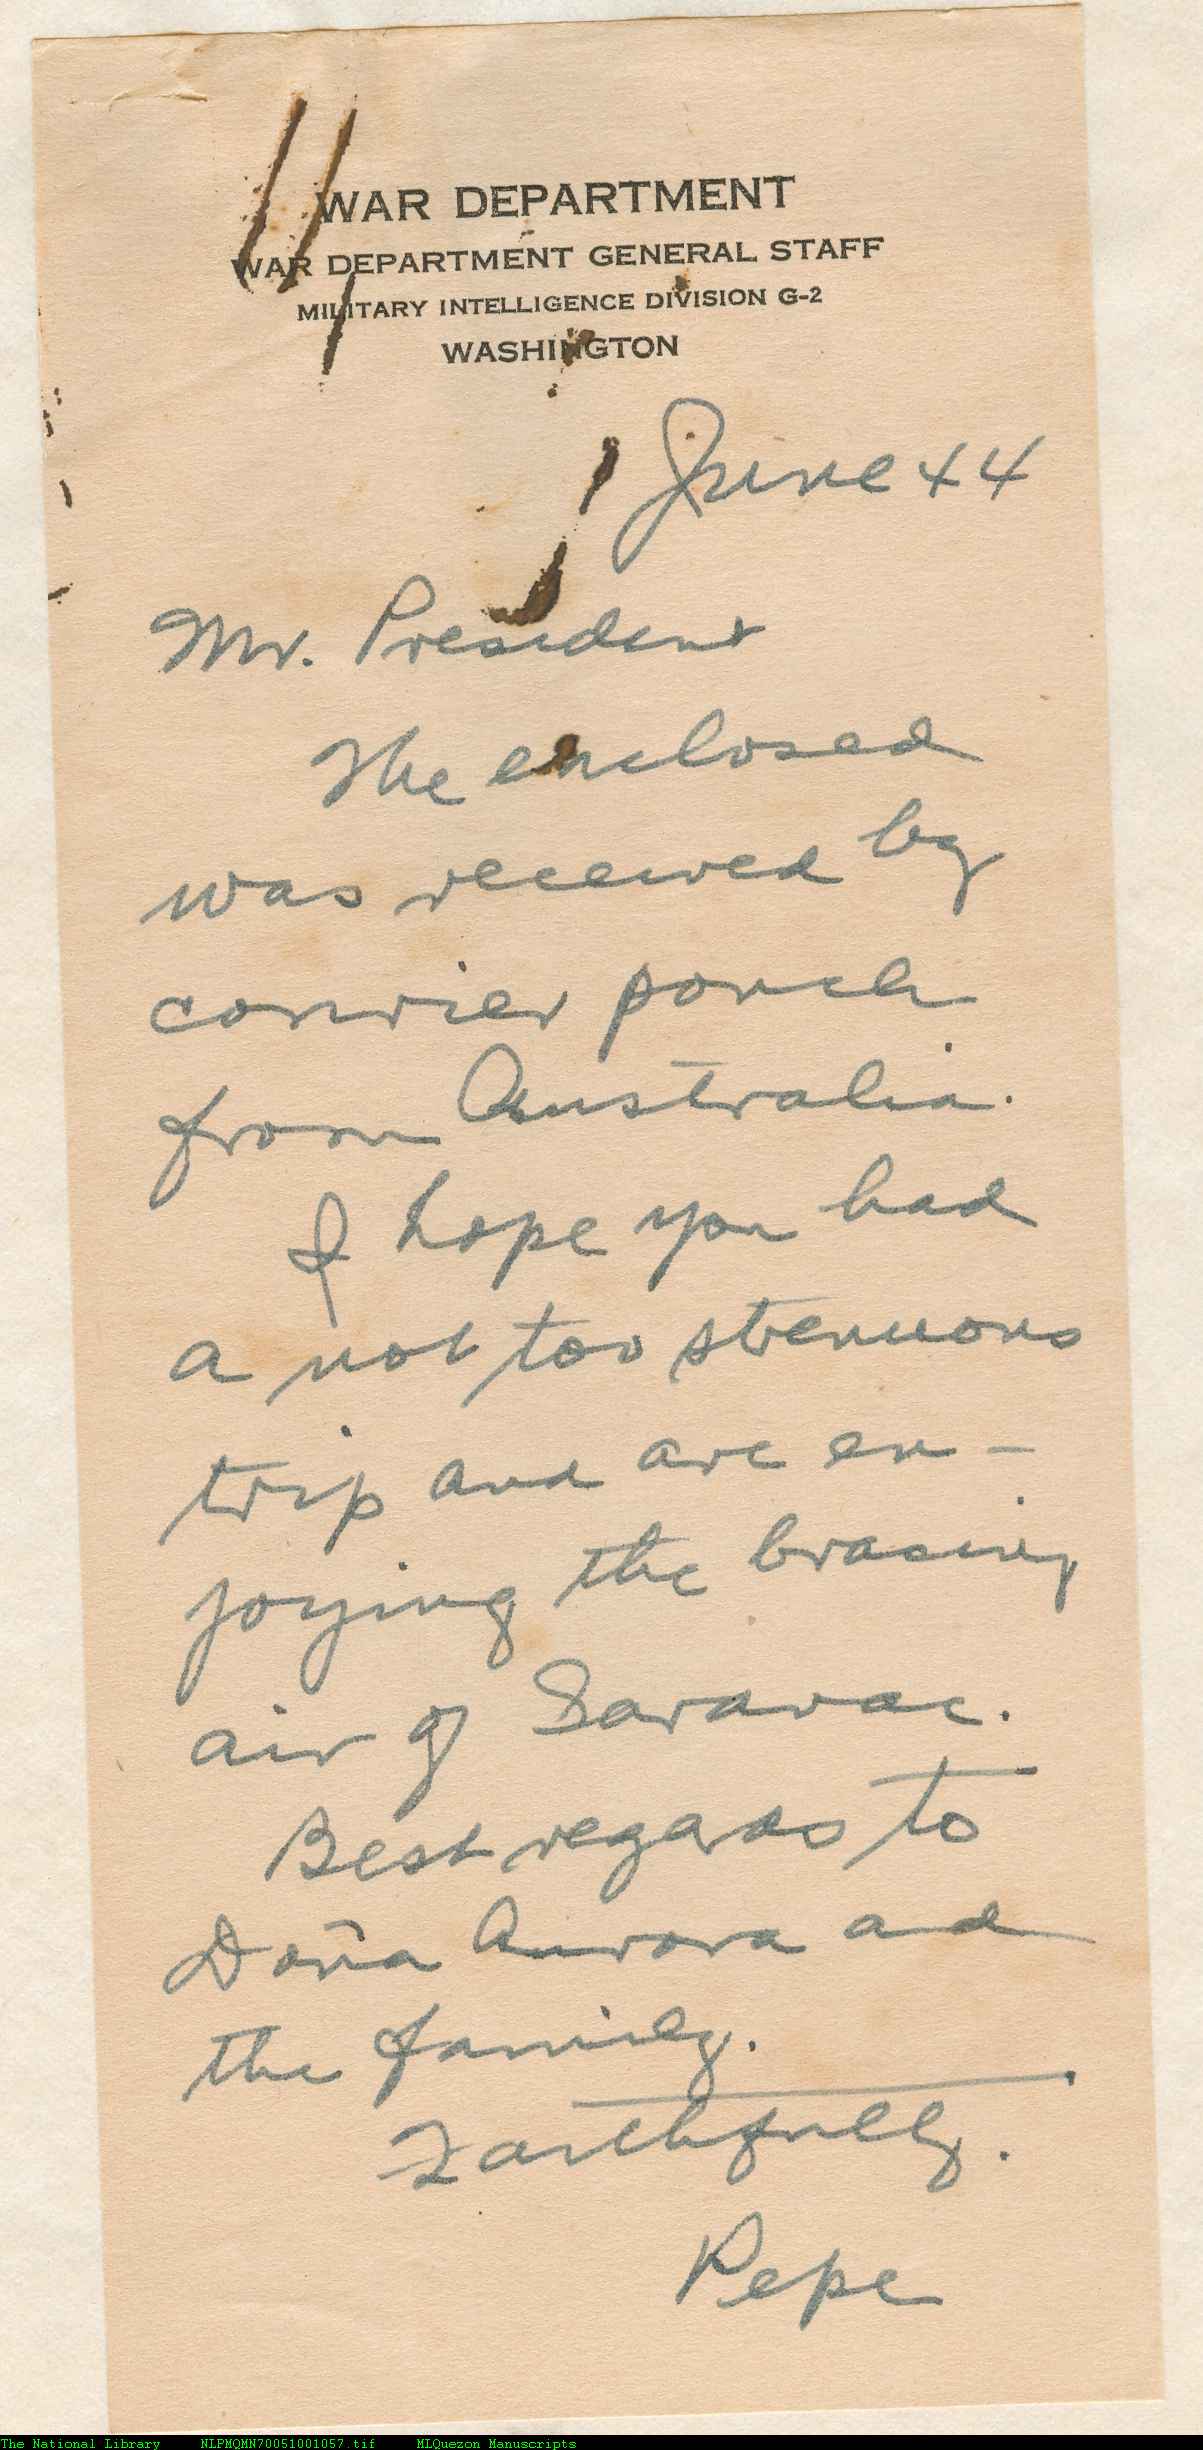 WAR DEPARTMENT
WAR DEPARTMENT GENERAL STAFF
MILITARY INTELLIGENCE DIVISION G-2
WASHINGTON
June 44
Mr. President
The enclosed
was received by
courier pouch
from Australia.
I hope you had
a not too strenuous
trip and are en-
joying the brasing
air of Saranac.
Best regards to
Doña Aurora and
the family.
Faithfully.
Pepe
The National Library NLPMQMN70051001057.tif MLQuezon Manuscripts